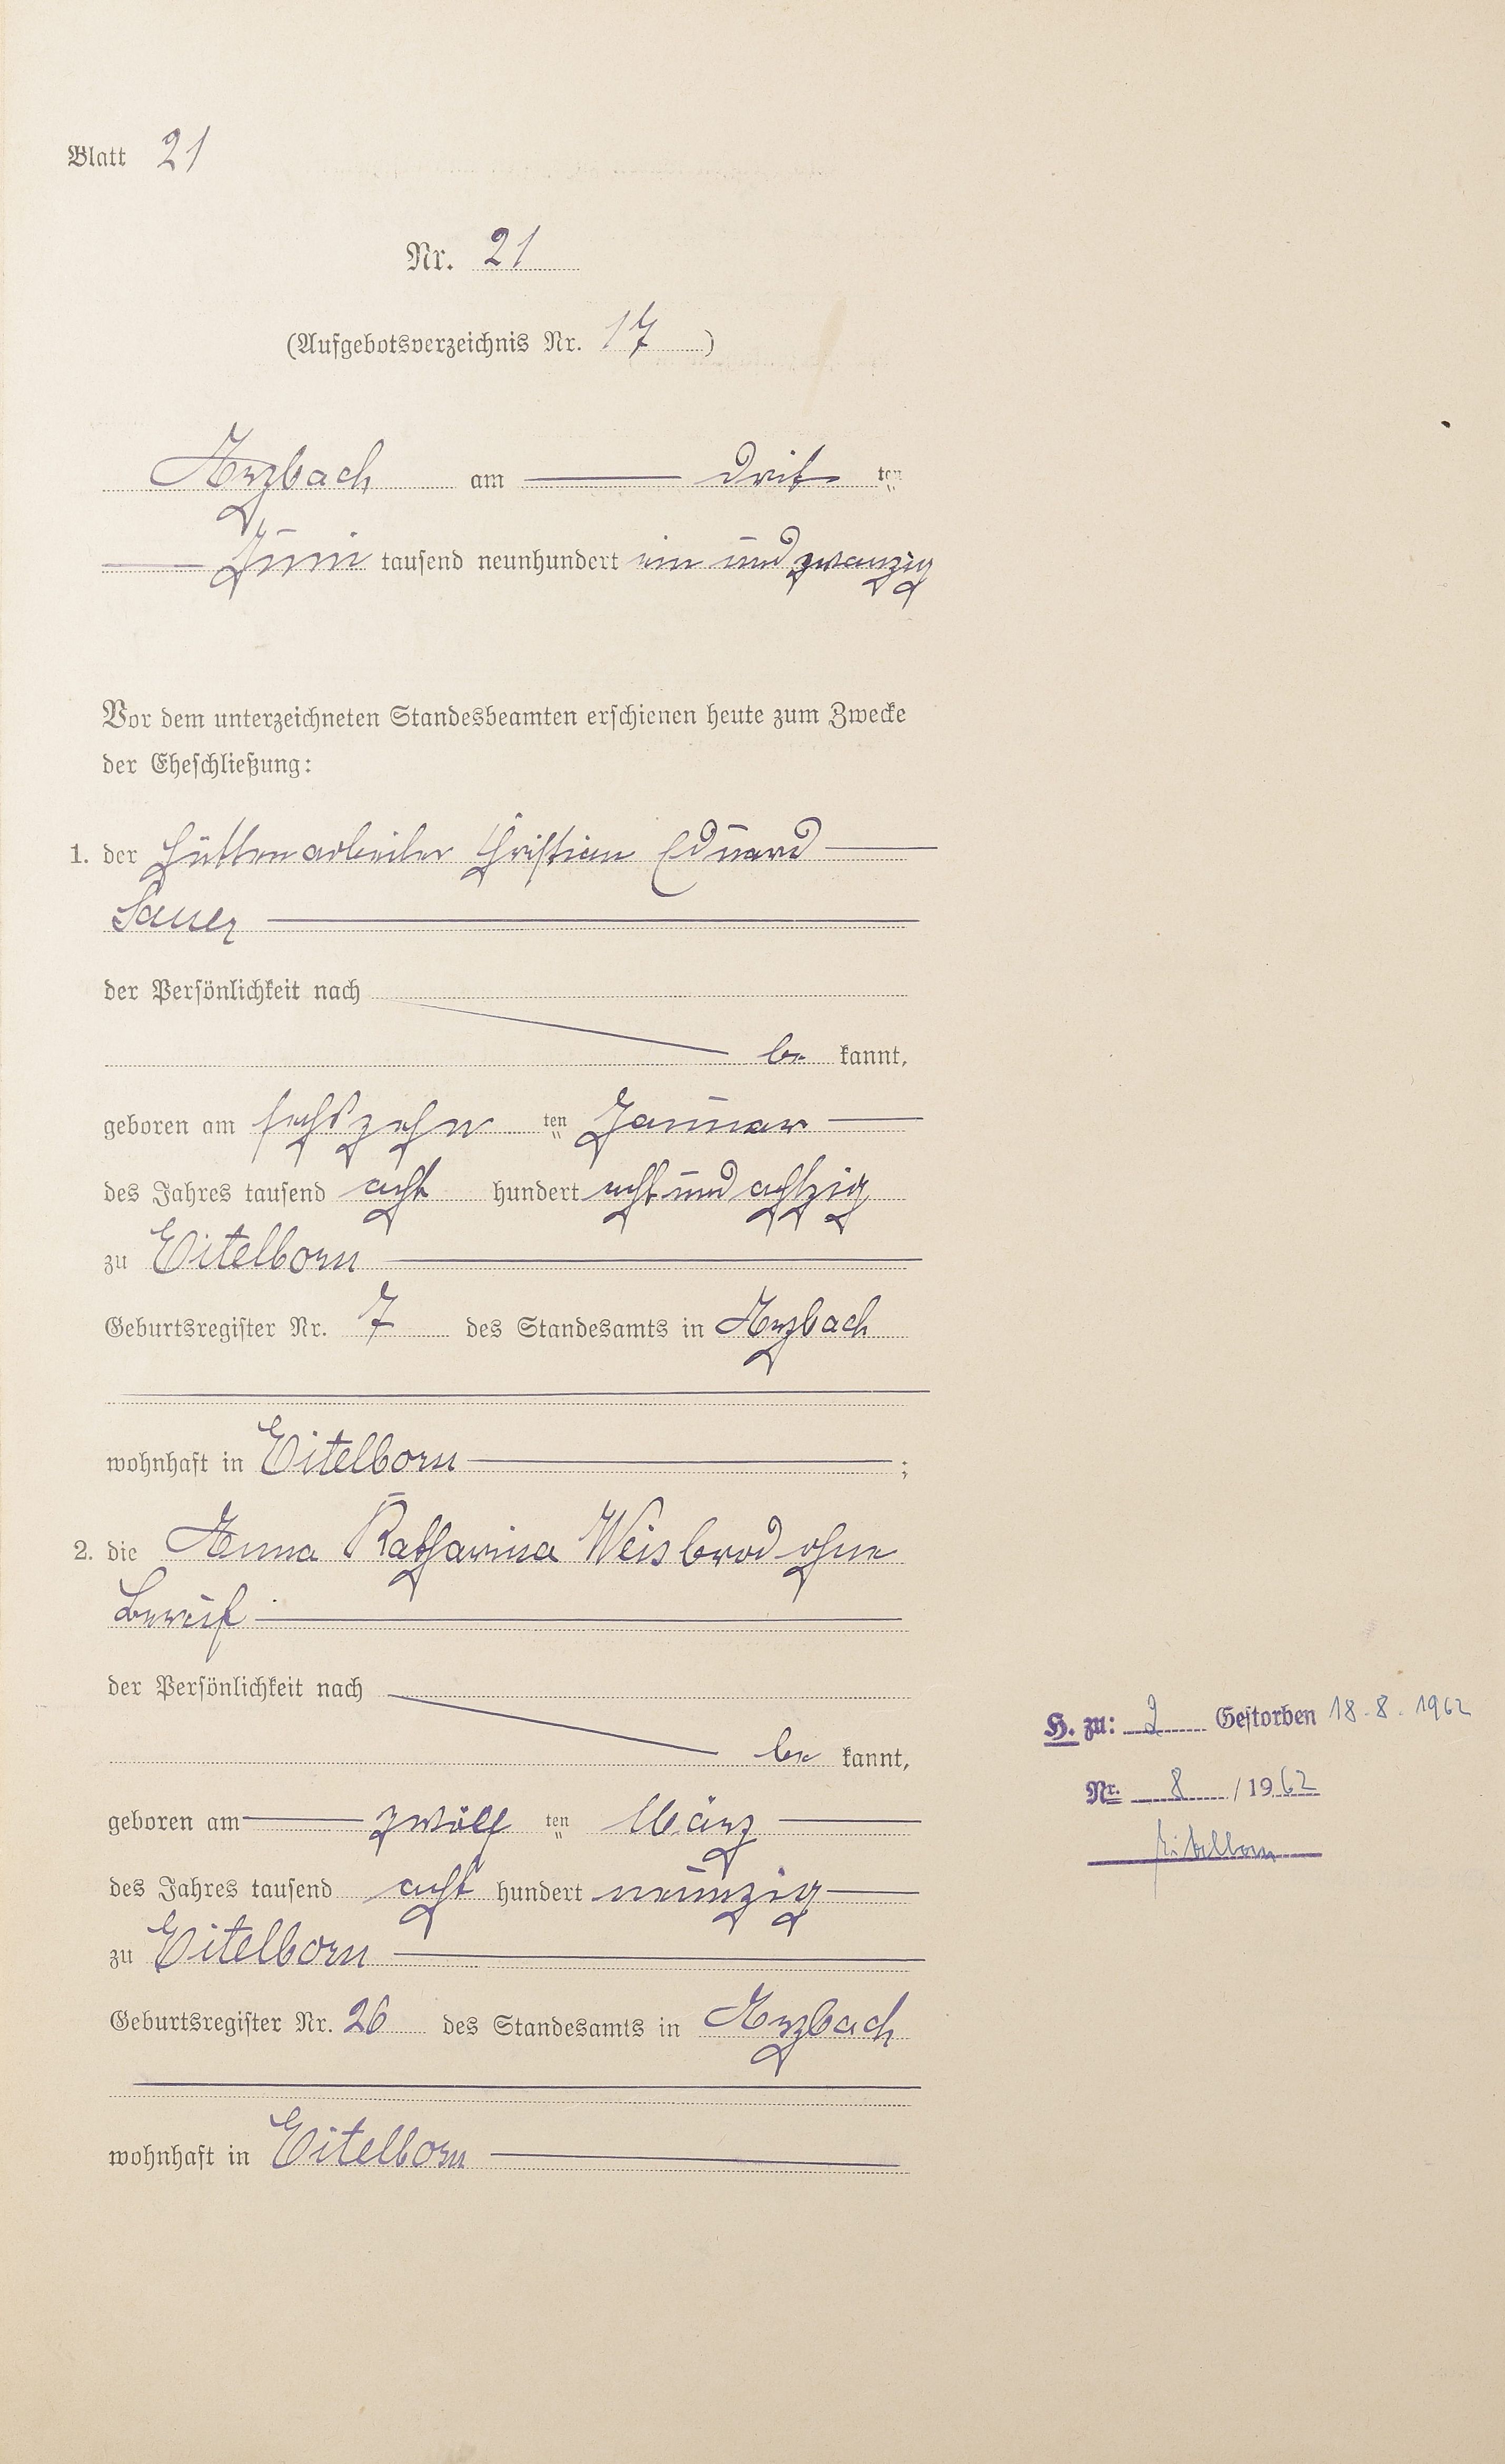 Blatt 21
Nr. 21
(Aufgebotsverzeichnis Nr. 17)
Arzbach am drit ten
Juni tausend neunhundert ein und zwanzig
Vor dem unterzeichneten Standesbeamten erschienen heute zum Zwecke
der Eheschließung:
1. der Hüttenarbeiter Christian Eduard
Sauer
der Persönlichkeit nach
be kannt,
geboren am sechszehn ten Januar
des Jahres tausend acht hundert acht und achtzig
zu Eitelborn
Geburtsregister Nr. 7 des Standesamts in Arzbach
wohnhaft in Eitelborn ;
2. die Anna Katharina Weisbrod ohne
Beruf
der Persönlichkeit nach
be kannt,
geboren am zwölf ten März
des Jahres tausend acht hundert neunzig
zu Eitelborn
Geburtsregister Nr. 26 des Standesamts in Arzbach
wohnhaft in Eitelborn
H. zu: 2 Gestorben 18.8.1962
Nr. 8 / 1962
Eitelborn